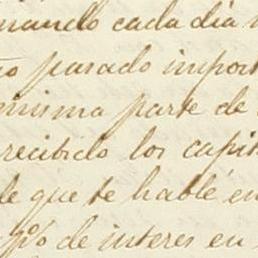 mando cada dia
ño pasado import
misma parte de
recibido los capit
de que te hablé en
p% de interes en